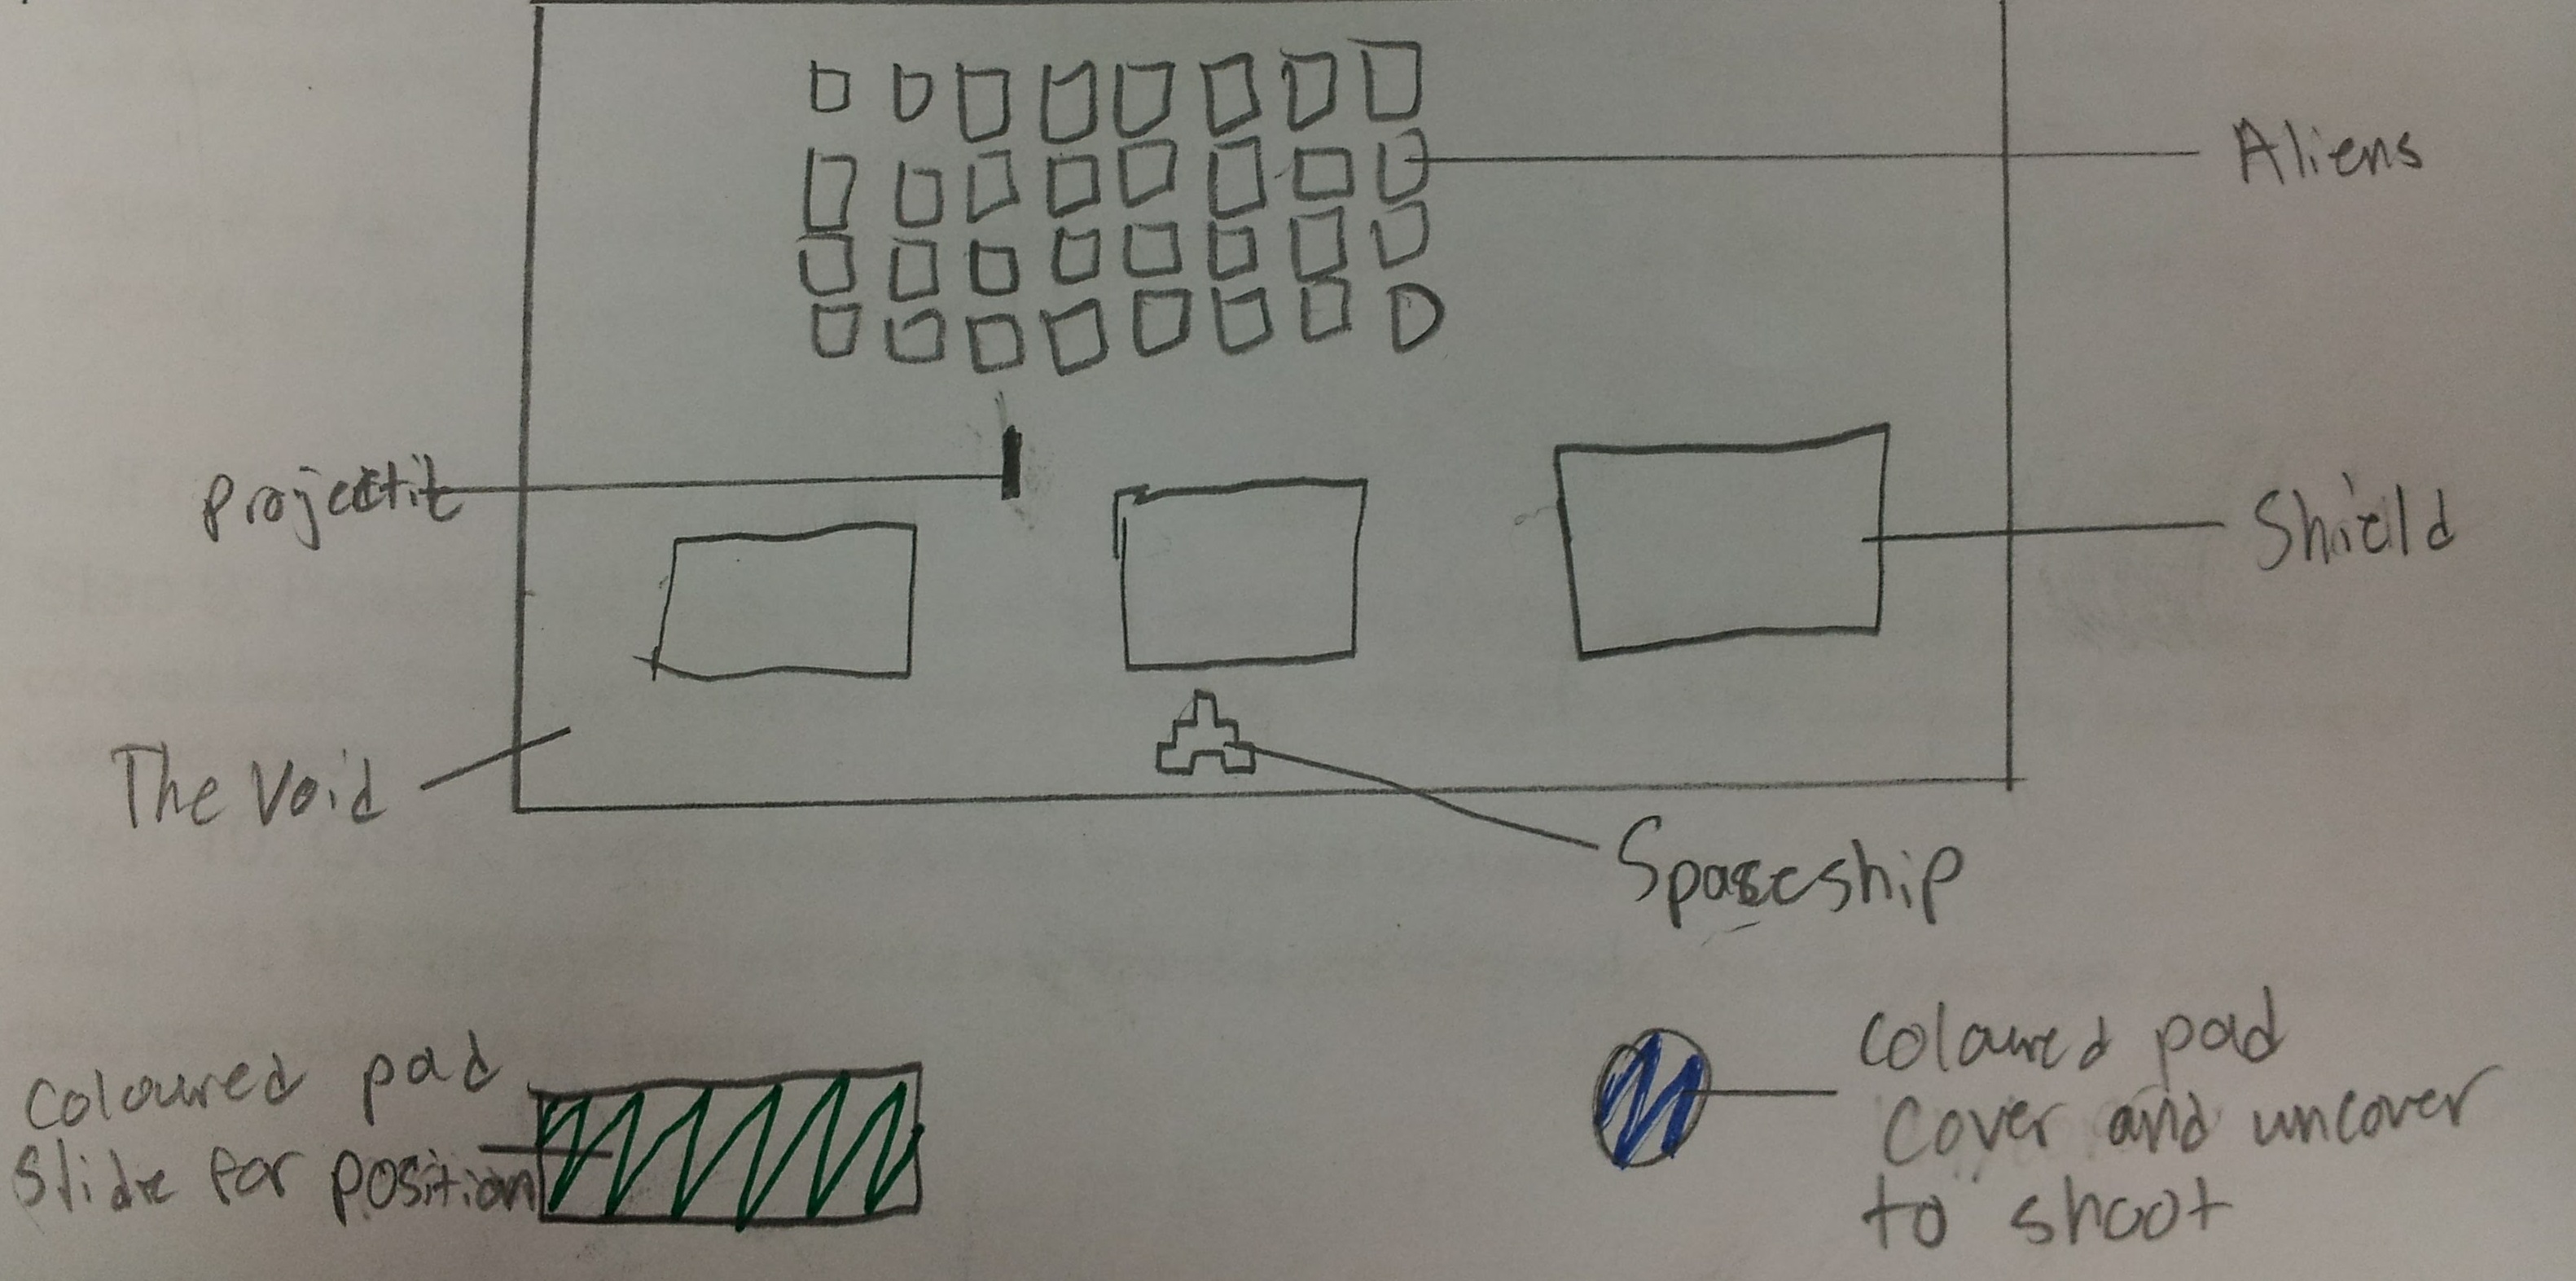 Aliens
Projectil
Shield
The Void
Spaceship
Coloured pad
Slide for position
Coloured pad
Cover and uncover
to shoot